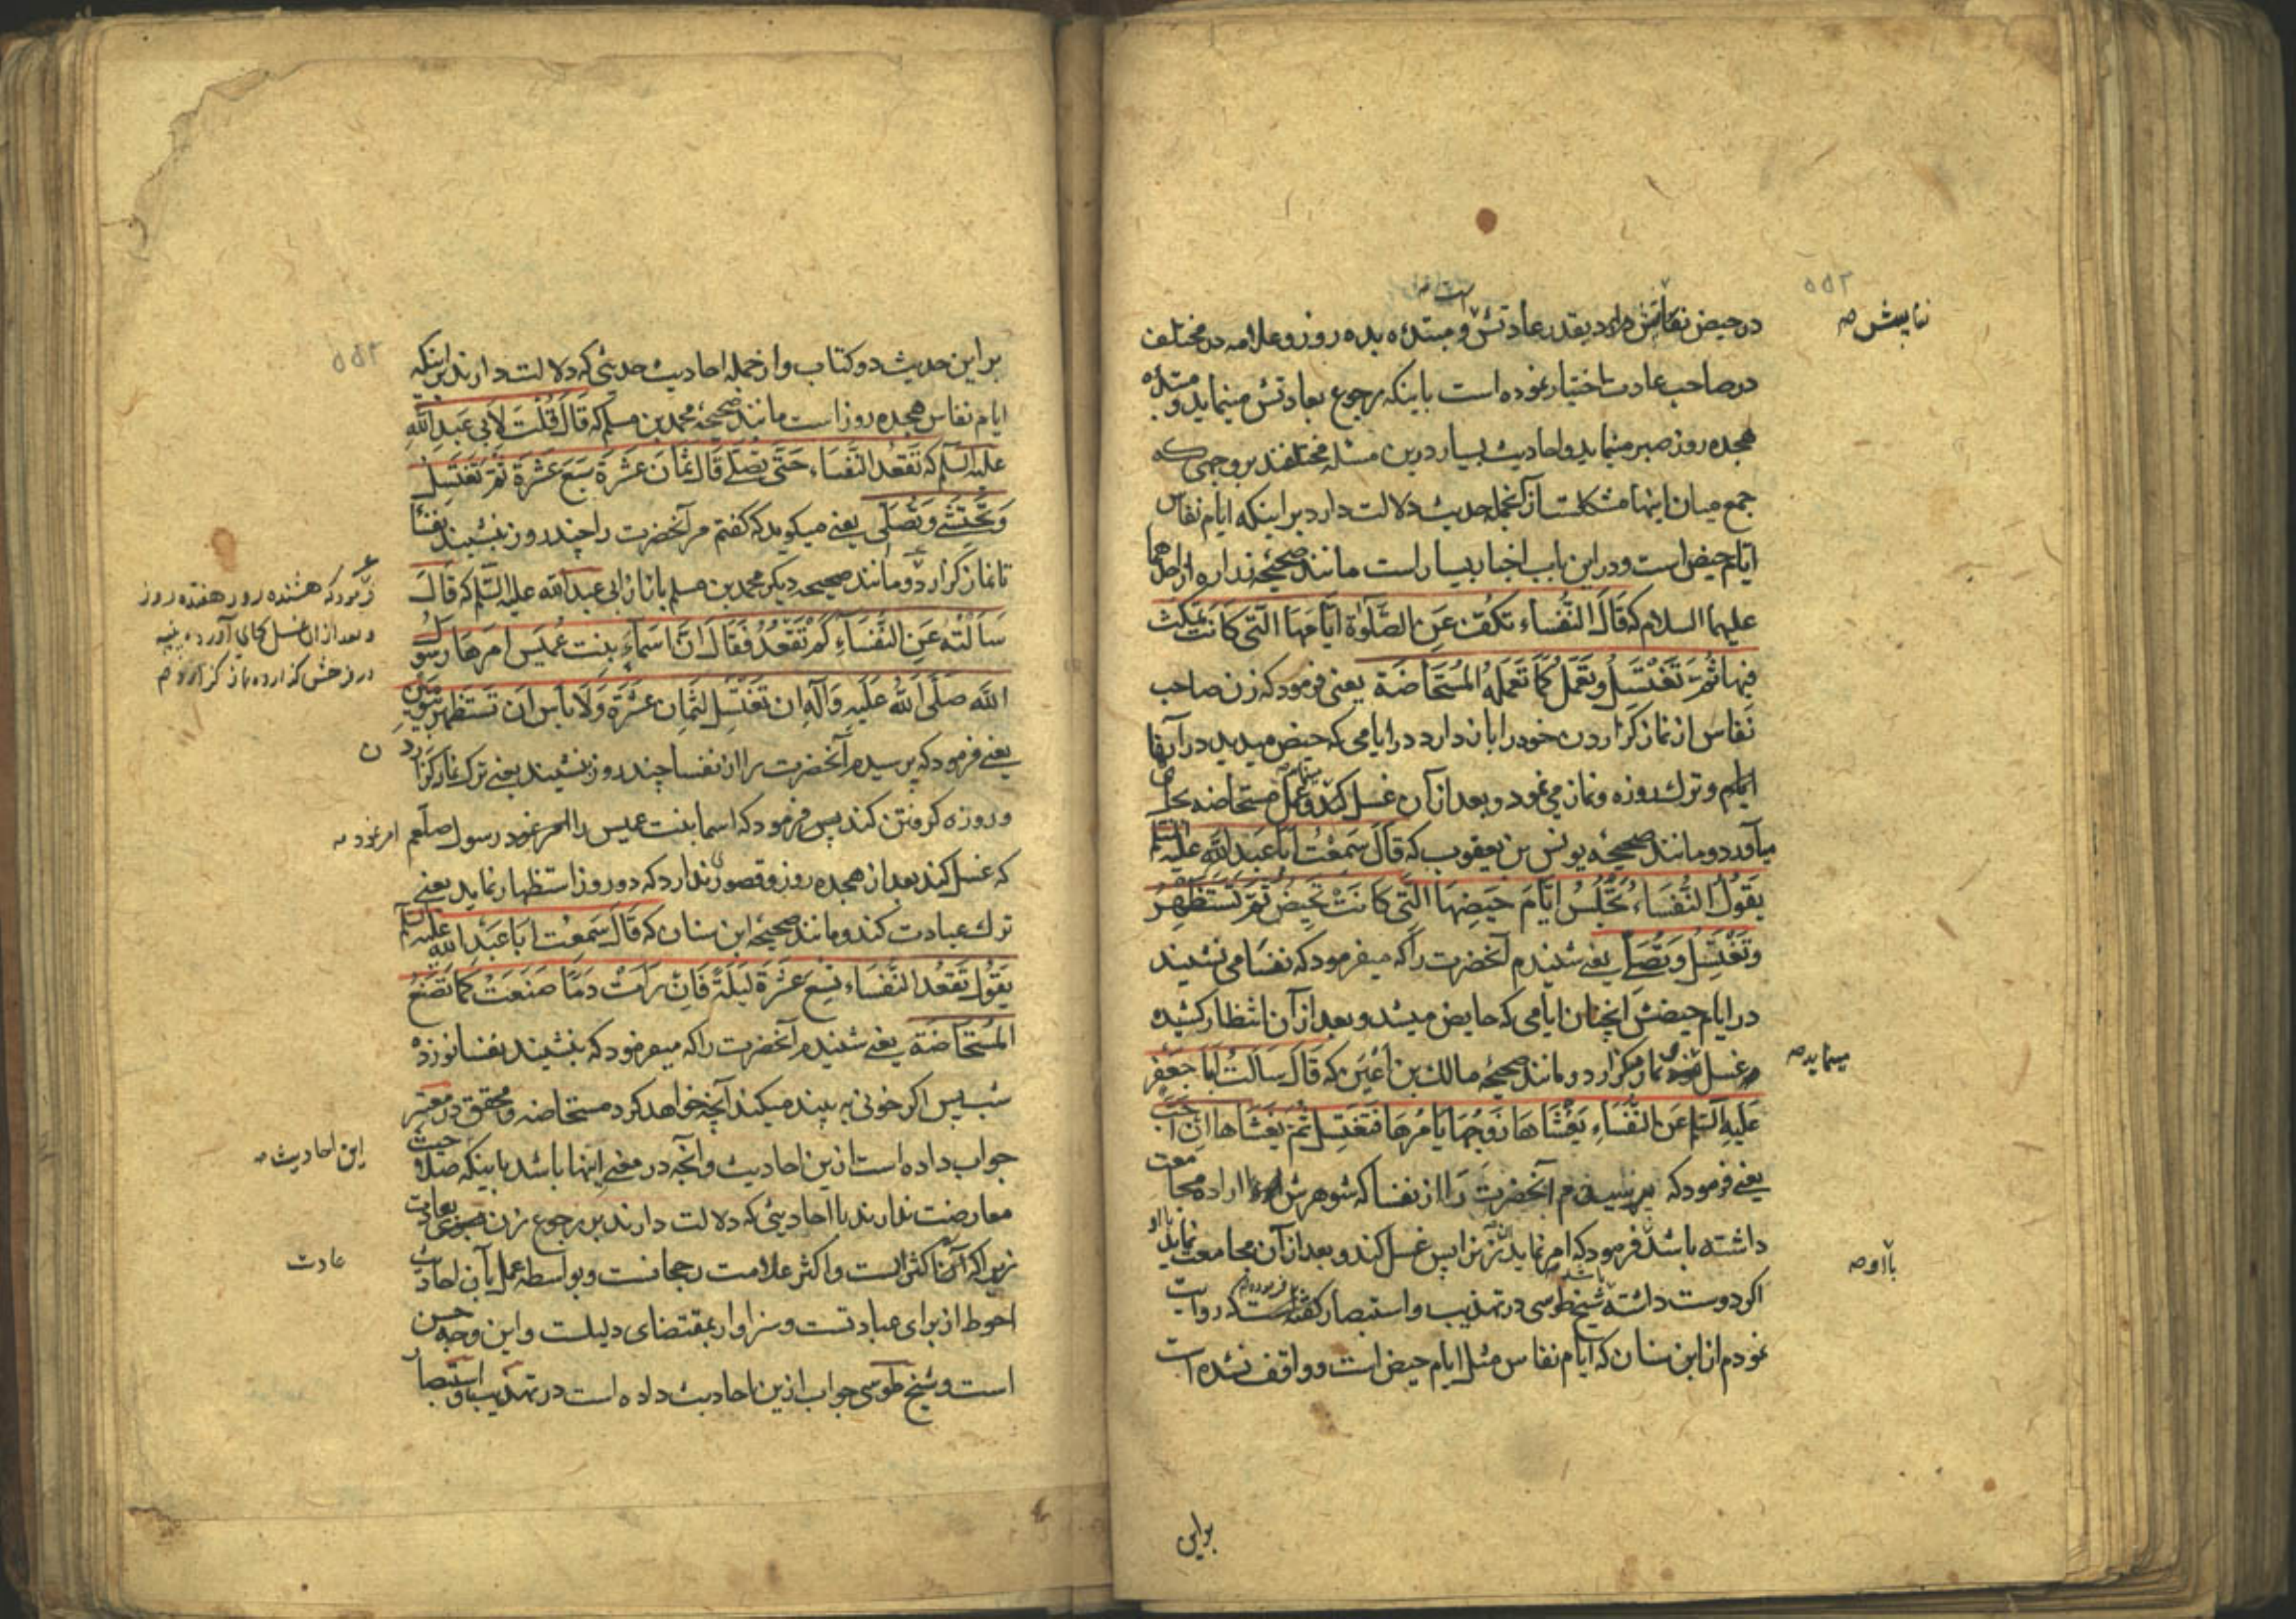 در حیض نفاسش دارد بقدر عادتش است و مبتدءه بده روز و علامه در مختلف
نفایسش صه
در صاحب عادت اختیار نموده است باینکه رجوع بعادتش مینماید و مبتدءه
هجده روز صبر مینماید و احادیث بسیار درین مسئله مختلفند بر وجهی که
جمع میان اینها مشکلست از آنجمله حدیث دلالت دارد بر اینکه ایام نفاس
ایام حیض است و در این باب اخبار بسیار است مانند صحیحه زراره از احدهما
علیهما السلام که قَالَ النُّفَسَاء تَکُفُّ عَنِ الصَّلوٰةِ اَیَّامَهَا الَّتی کَانَت تَمکُثُ
فِیهَا ثُمَّ تَغْتَسِلُ وَتَعمَلُ کَمَا تَعمَلُه المُستَحَاضَة یعنی فرمود که زن صاحب
نفاس از نماز گزاردن خود را باز دارد در ایامی که حیض میدید در آنها
ایام و ترک روزه و نماز می نمود و بعد از آن غسل کند و عمل مستحاضه بجا
میآورد و مانند صحیحه یونس بن یعقوب که قَالَ سَمِعْتُ اَبَا عَبدِ اللّٰهِ علیه السلم
یَقولُ النُّفَسَاءُ تَجْلِسُ ایَّامَ حَیضِهَا الَّتِی کَانَتْ تَحِیضُ ثُمَّ تَسْتَظْهِرُ
وَتَغْتَسِلُ وَتُصَلّی یعنی شنیدم آنحضرت را که میفرمود که نفسا می نشیند
در ایام حیضش آنچنان ایامی که حایض میشد و بعد از آن انتظار کشیده
غسل نماز میگزارد و مانند صحیحه مالک بن اَعیَن که قَالَ سَاَلتُ اَبَا جَعفَرٍ
مینماید صه
عَلَیهِ السَّلم عَنِ النُّفَسَاءِ یَغْشَاهَا زَوجُهَا یَامُرُهَا فَتَغتَسِل ثُمّ یَغشَاها اِن اَحَبَّ
یعنی فرمود که پرسیدم آنحضرت را از نفسا که شوهرش اراده مجامعت
داشته باشد فرمود که امر نماید زن را پس غسل کند و بعد از آن مجامعت نماید با او
با او صه
اگر دوست داشته باشد شیخ طوسی در تهذیب و استبصار گفته است که روایت
نمودم از ابن سنان که ایام نفاس مثل ایام حیض است و واقف نشده است
براین
بر این حدیث دو کتاب و از جمله احادیث حدیثی که دلالت دارند بر اینکه
ایام نفاس هجده روز است مانند صحیحه محمد بن مسلم که قَالَ قُلتُ لاَبی عَبدِ اللّٰهِ
علیه السلم کَم تَقعُد النُّفَسَاء حَتّی تُصَلّی قَالَ ثَمَانَ عَشرَةَ سَبعَ عَشرَةَ ثُمَّ تَغتَسِلُ
وَتَحتَشِی وَتُصَلّی یعنی میگوید که گفتم مر آنحضرت را چند روز نشیند نفسا
تا نماز گزارد و مانند صحیحه دیگر محمد بن مسلم باز از ابی عبد الله علیه السلم که قَالَ
فرمود که هشتده روز هفتده روز
و بعد از ان غسل بجای آورده پنبه
در فرجش گذارده نماز گزارد صه
سَاَلتُهُ عَنِ النُّفَسَاءِ کَم تَقعُدُ فَقَالَ اِنَّ اَسمَاءَ بِنت عُمَیس اَمَرهَا رَسولُ
اللّٰه صَلَّی اللّٰهُ عَلَیهِ وَآلِهِ ان تَغتَسِل لِثَمَانَ عَشَرَةَ وَلاَ بَأسَ اَن تَستَظهِر بِیَومٍ اَو یَومَینِ
یعنی فرمود که پرسیدم آنحضرت را از نفسا چند روز نشیند یعنی ترک نماز گزاردن
و روزه گرفتن کند پس فرمود که اسما بنت عمیس را امر نمود رسول صلعم
امر نمود صه
که غسل کند بعد از هجده روز و قصور ندارد که دو روز استظهار نماید یعنی
ترک عبادت کند و مانند صحیحه ابن سنان که قَالَ سَمِعتُ اَبَا عَبدِ اللّٰه علیه السلم
یَقُولُ تَقعُد النُّفَسَاء تِسعَ عَشَرَةَ لَیلَةً فَاِن رَاَتْ دَمًا صَنَعَتْ کَمَا تَصنَعُ
المُستَحَاضَة یعنی شنیدم آنحضرت را که میفرمود که بنشیند نفسا نوزده
شب پس اگر خونی به بیند میکند آنچه خواهد کرد مستحاضه و محقق در معتبر
جواب داده است ازین احادیث و آنچه در معنی اینها باشد باینکه حیث
این احادیث صه
معارضت ندارند با احادیثی که دلالت دارند بر رجوع زن بعادت
زیرا که آن اکثر است و اکثر علامت رجحانست و بواسطه عمل بآن احادیث
عادت
احوط از برای عبادتست و سزاوار بمقتضای دلیلست و این وجه حسن
است و شیخ طوسی جواب ازین احادیث داده است در تهذیب و استبصار